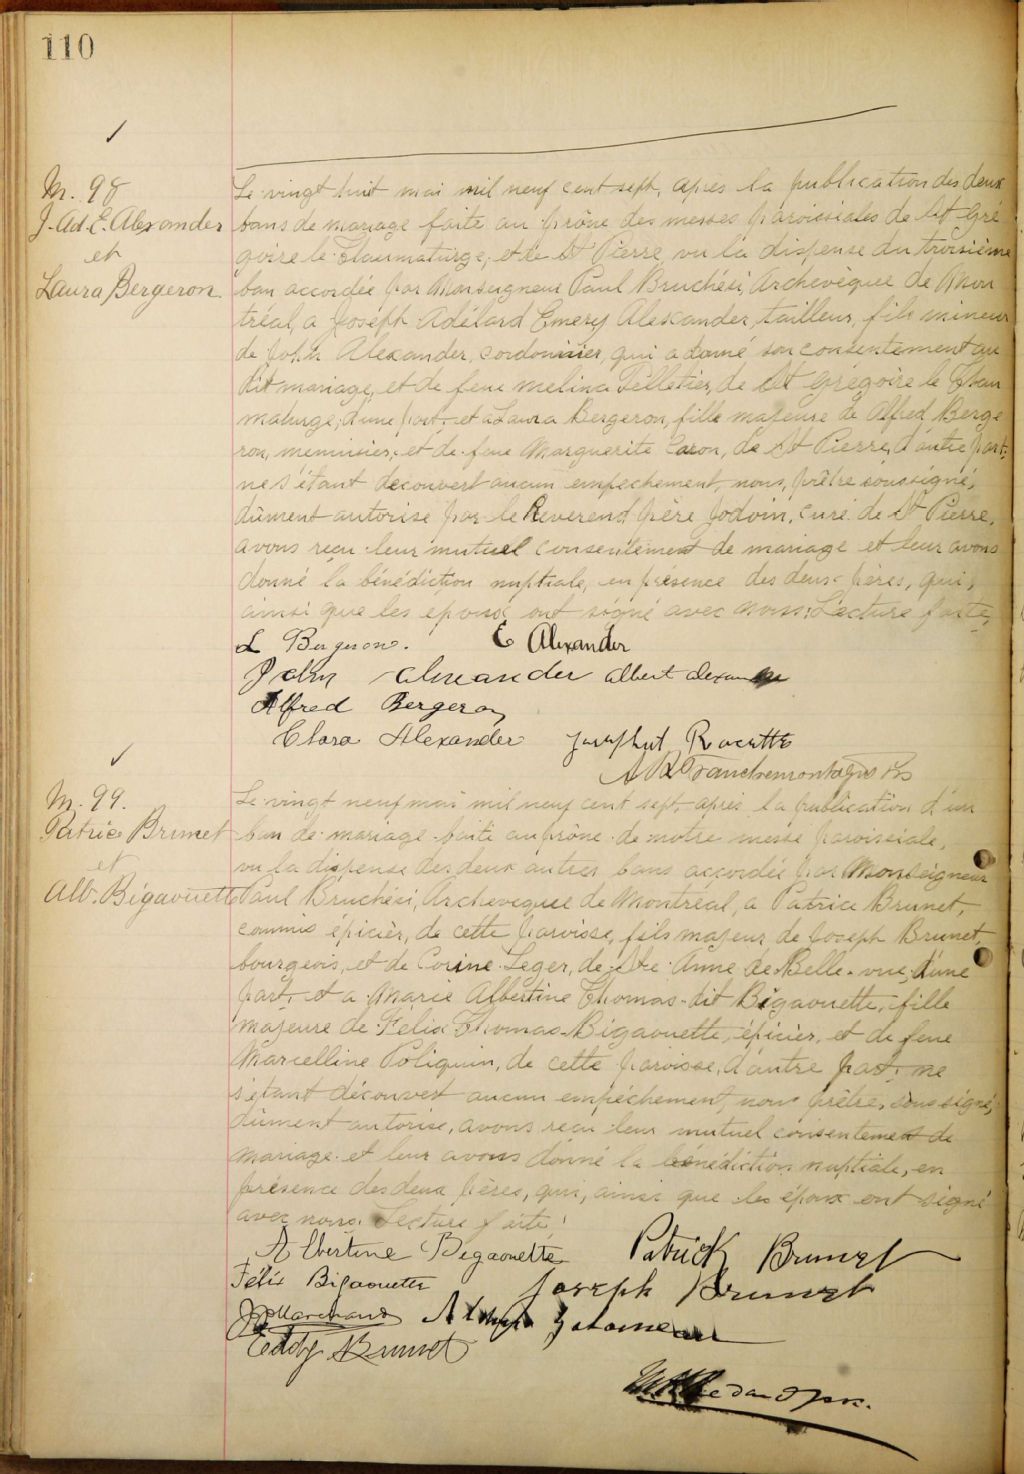 110
M. 98
J. Ad. E. Alexander
et
Laura Bergeron
Le vingt huit mai mil neuf cent sept, après la publication des deux
bans de mariage faite au prône des messes paroissiales de St Gré
goire le Thaumaturge, et de St Pierre, vu la dispense du troisième
ban accordée par Monseigneur Paul Bruchési, Archevêque de Mon
tréal, a Joseph Adélard Emery Alexander, tailleur, fils mineur
de John Alexander, cordonnier, qui a donné son consentement au
dit mariage, et de feue Melina Pelletier, de St Grégoire le Thau
maturge, d'une part, et a Laura Bergeron, fille majeure de Alfred Berge
ron, menuisier, et de feue Marguerite Caron, de St Pierre, d'autre part;
ne s'étant découvert aucun empechement, nous, prêtre soussigné,
dûment autorisé par le Reverend père Jodoin, curé de St Pierre,
avons reçu leur mutuel consentement de mariage et leur avons
donné la bénédiction nuptiale, en présence des deux pères, qui,
ainsi que les epoux ont signé avec nous. Lecture faite,
L Bergeron. E Alexander
John Alexander Albert Alexander
Alfred Bergeron
Clara Alexander Rocette
Franchemontagne
M. 99.
Patrice Brunet
et
Alb. Bigaouette
Le vingt neuf mai mil neuf cent sept, après la publication d'un
ban de mariage faite au prône de notre messe paroissiale,
vu la dispense des deux autres bans accordée par Monseigneur
Paul Bruchési, Archevêque de Montréal, a Patrice Brunet,
commis épicier, de cette paroisse, fils majeur de Joseph Brunet,
bourgeois, et de Corine Leger, de Ste Anne de Belle-vue, d'une
part, et a Marie Albertine Thomas dit Bigaouette, fille
majeure de Felix Thomas Bigaouette, épicier, et de feue
Marcelline Poliquin, de cette paroisse, d'autre part; ne
s'étant découvert aucun empêchement, nous prêtre, soussigné,
dûment autorisé, avons reçu leur mutuel consentement de
mariage et leur avons donné la bénédiction nuptiale, en
présence des deux pères, qui, ainsi que les époux ont signé
avec nous. Lecture faite!
Albertine Bigaouette Patrick Brunet
Félix Bigaouette Joseph Brunet
Marchand
Eddy Brunet